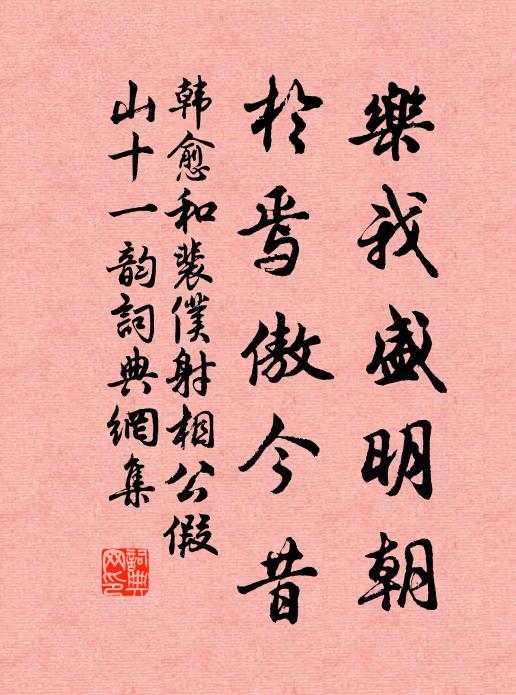 樂我盛明朝
於焉傲今昔
韩愈和裴僕射相公假
山十一韵詞典網集
詞典
网印